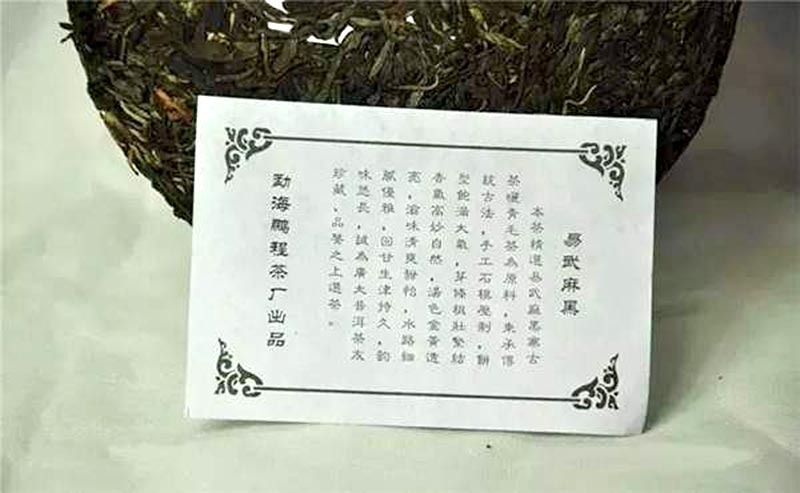 易武麻黑
本茶精選易武麻黑寨古
茶曬青毛茶為原料，秉承傳
統古法，手工石模壓制，餅
型飽滿大氣，芽條粗壯緊結
香氣高妙自然，湯色金黃透
亮，滋味清爽甜怡，水路細
膩優雅，回甘生津持久，韵
味悠長，誠為廣大普洱茶友
珍藏、品鑒之上選茶。
勐海鵬程茶厂出品